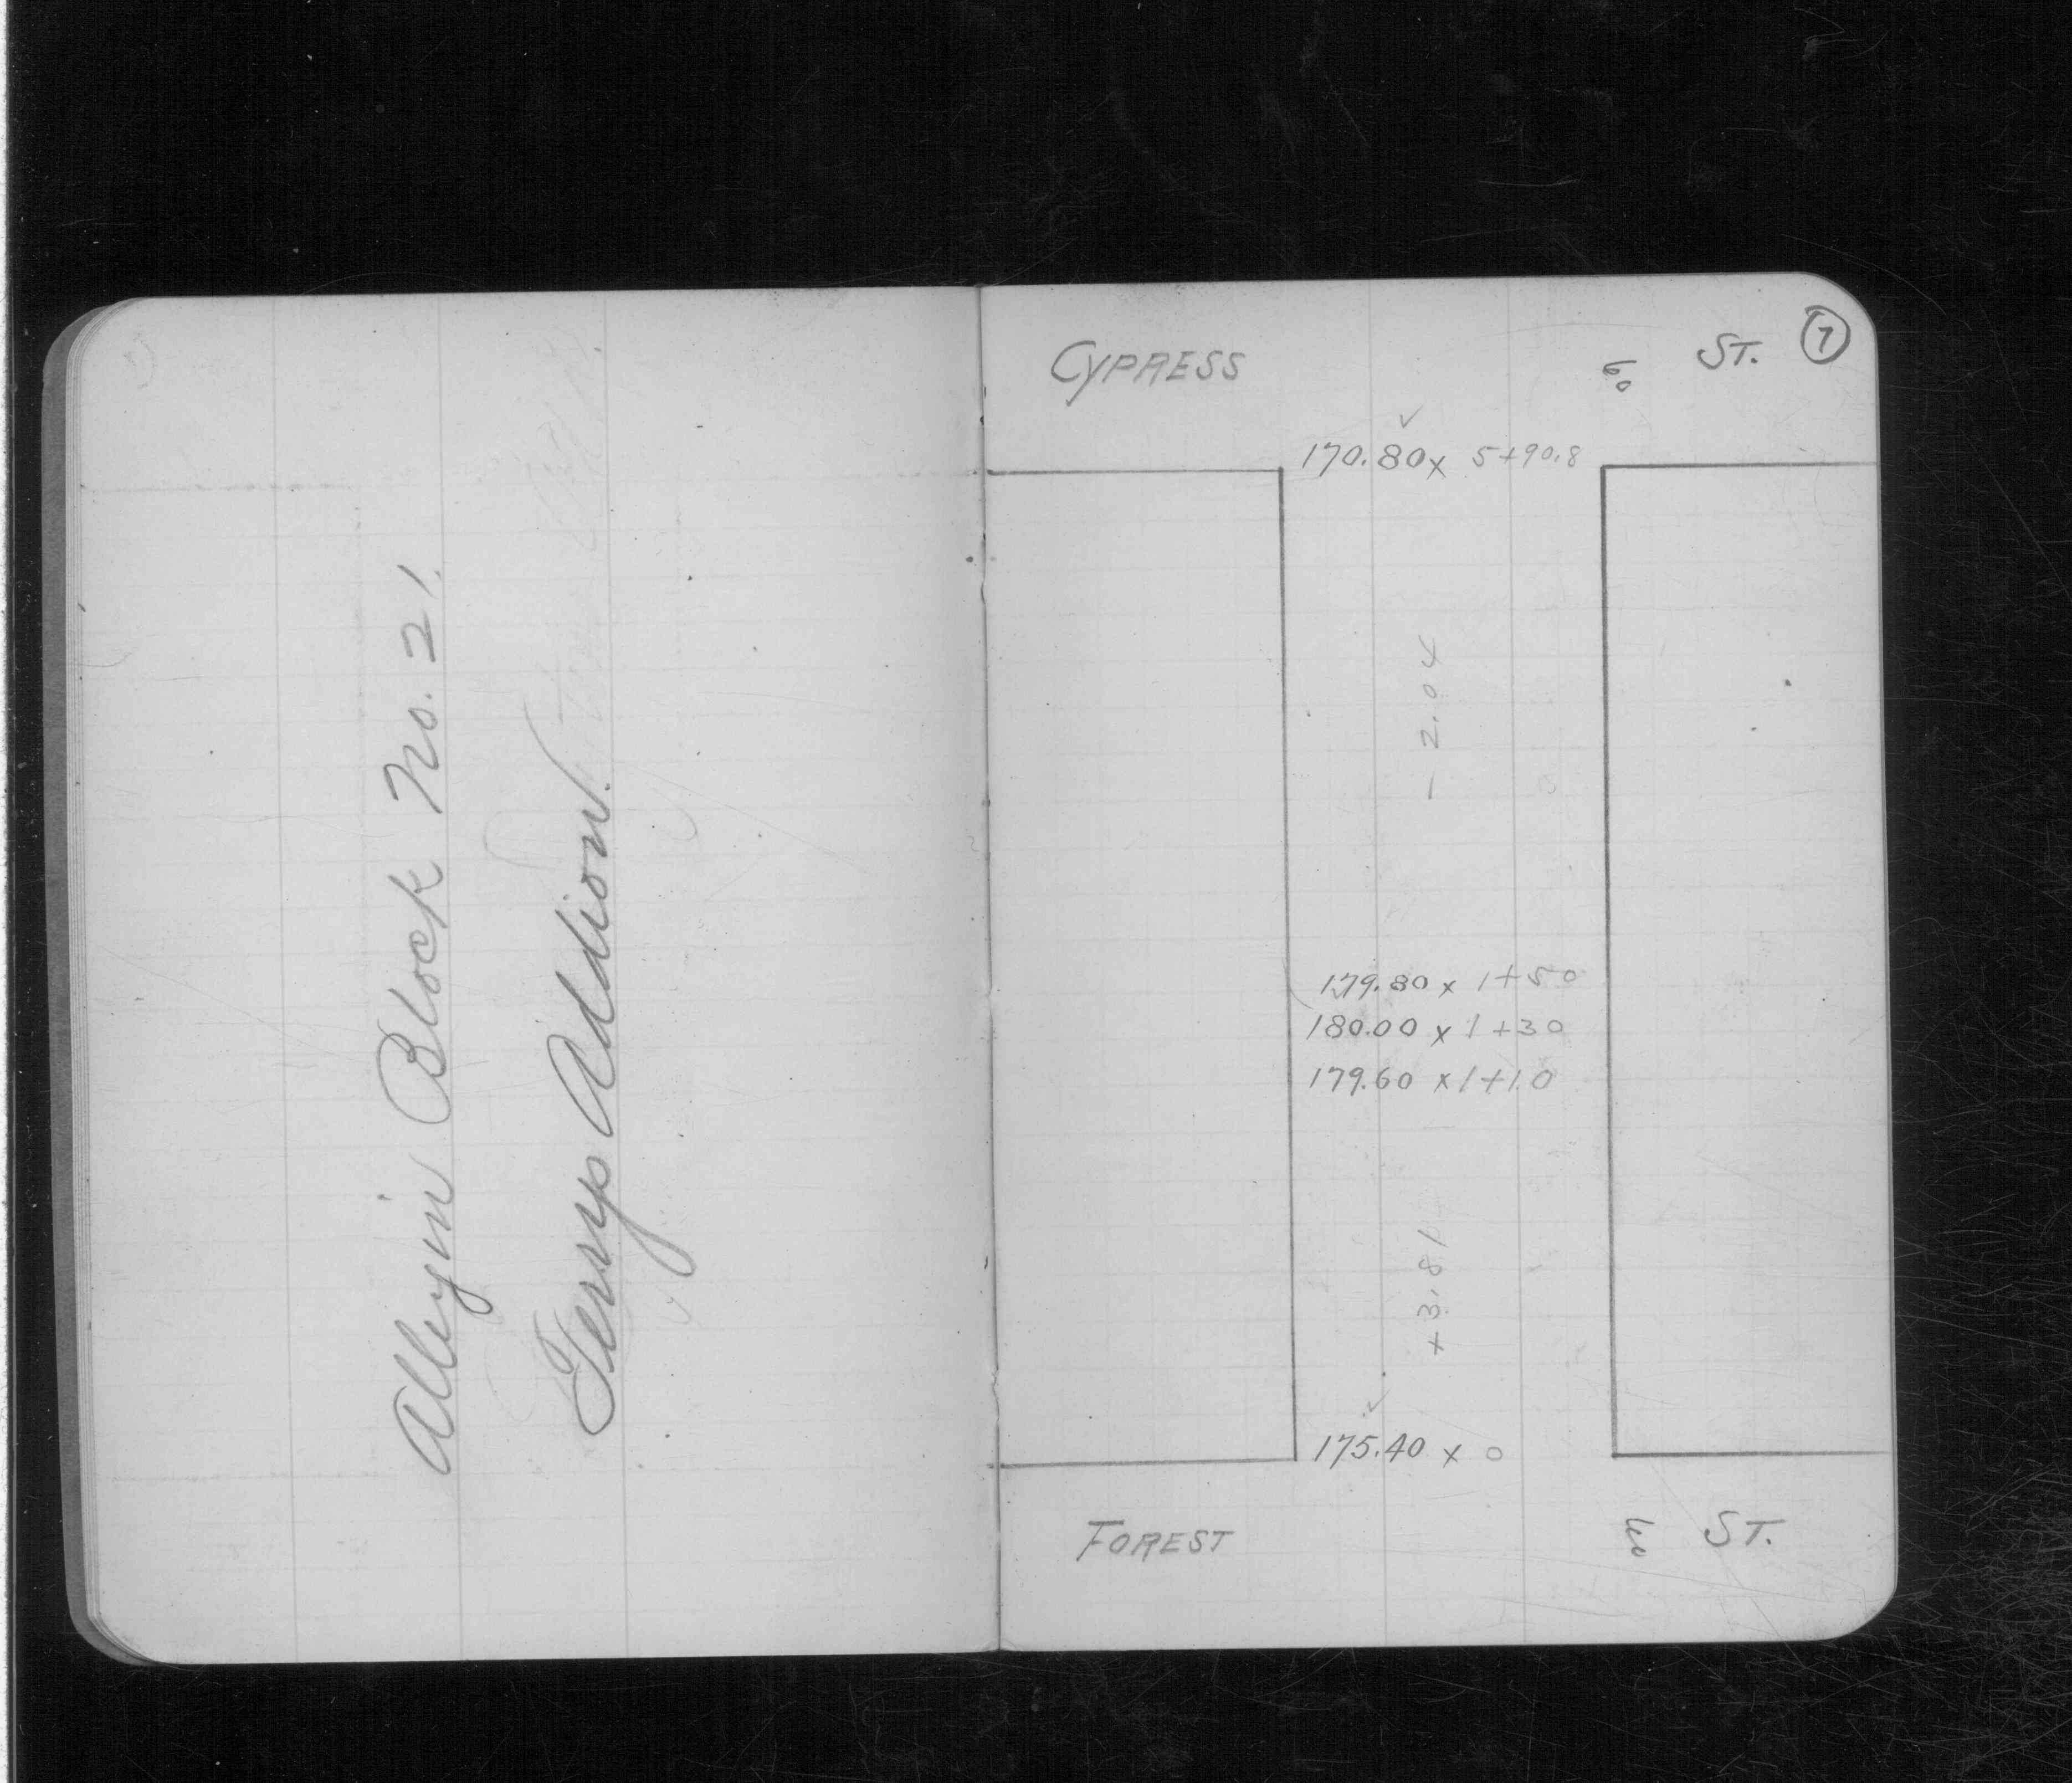 Alleyin Block No. 21.
Terry Addion.
CYPRESS 60 ST. 7
170.80 x 5+90.8
- 2.04
179.80 x 1+50
180.00 x 1+30
179.60 x 1+10
+3.81
175.40 x 0
FOREST 60 ST.